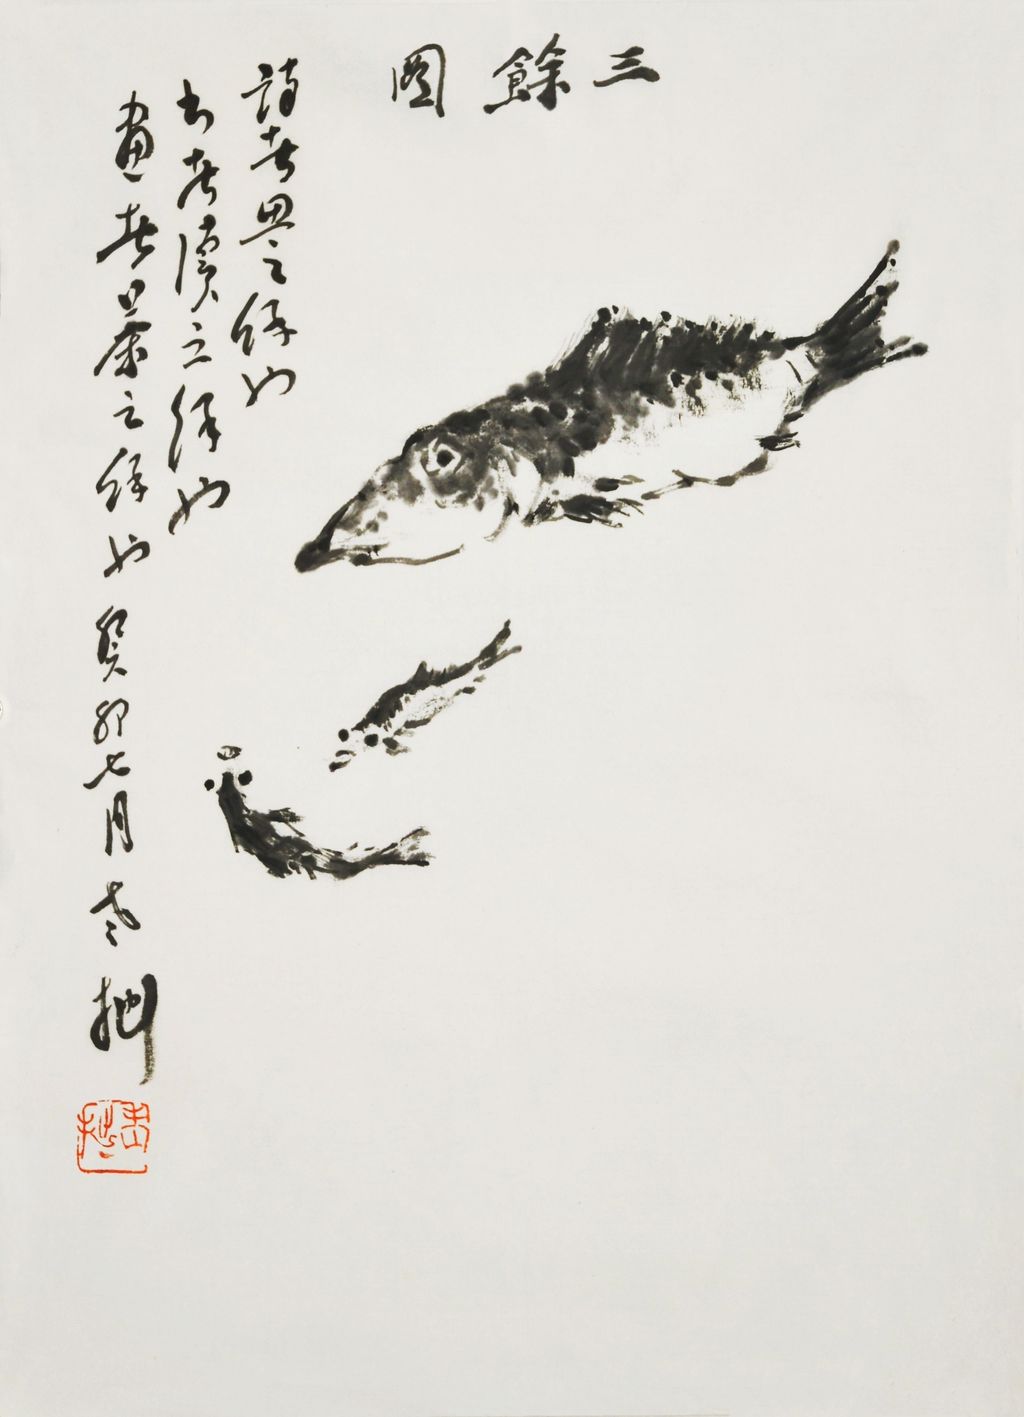 三餘圖
詩者思之餘也
書者讀之餘也
畫者之餘也癸卯七月老拙